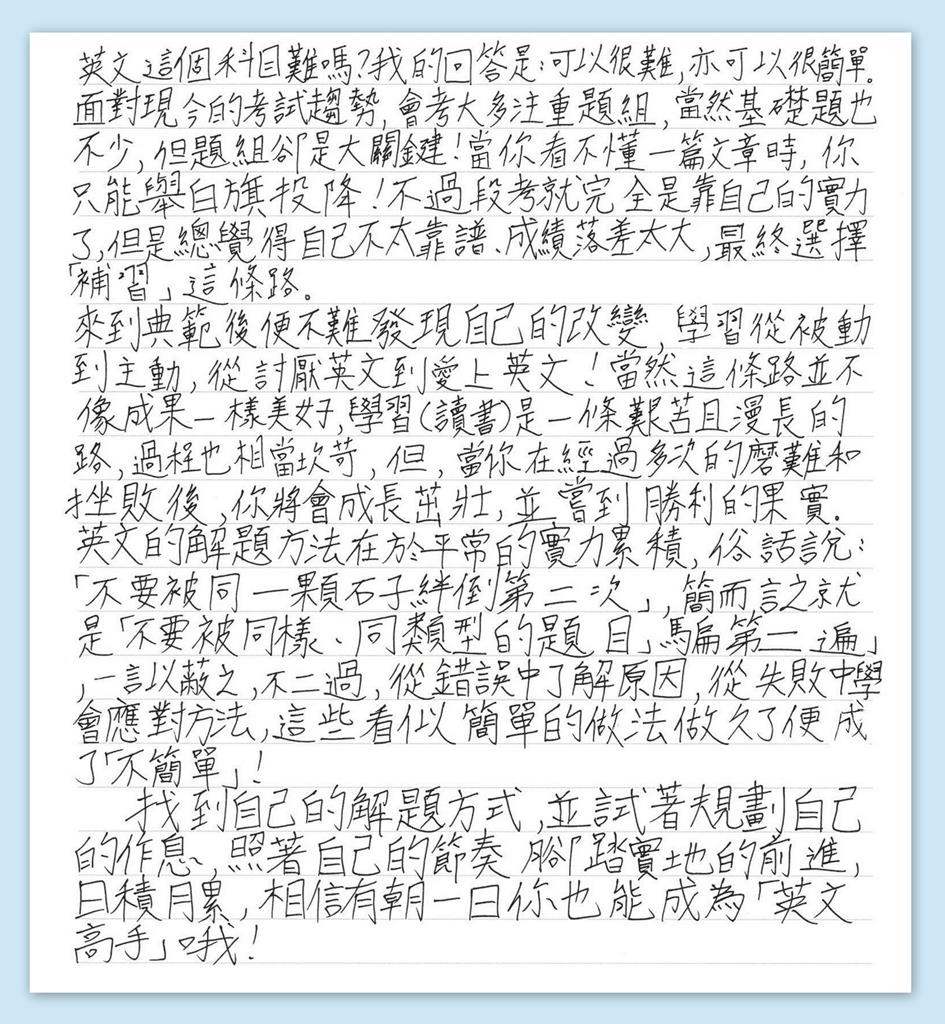 英文這個科目難嗎?我的回答是:可以很難,亦可以很簡單。
面對現今的考試趨勢,會考大多注重題組,當然基礎題也
不少,但題組卻是大關鍵!當你看不懂一篇文章時,你
只能舉白旗投降!不過段考就完全是靠自己的實力
了,但是總覺得自己不太靠譜、成績落差太大,最終選擇
「補習」這條路。
來到典範後便不難發現自己的改變,學習從被動
到主動,從討厭英文到愛上英文!當然這條路並不
像成果一樣美好,學習(讀書)是一條艱苦且漫長的
路,過程也相當坎苛,但,當你在經過多次的磨難和
挫敗後,你將會成長茁壯,並嘗到勝利的果實.
英文的解題方法在於平常的實力累積,俗話說:
「不要被同一顆石子絆倒第二次」,簡而言之就
是「不要被同樣、同類型的題目」騙第二遍」
,一言以蔽之,不二過,從錯誤中了解原因,從失敗中學
會應對方法,這些看似簡單的做法做久了便成
了「不簡單」!
找到自己的解題方式,並試著規劃自己
的作息、照著自己的節奏腳踏實地的前進,
日積月累,相信有朝一日你也能成為「英文
高手」哦!